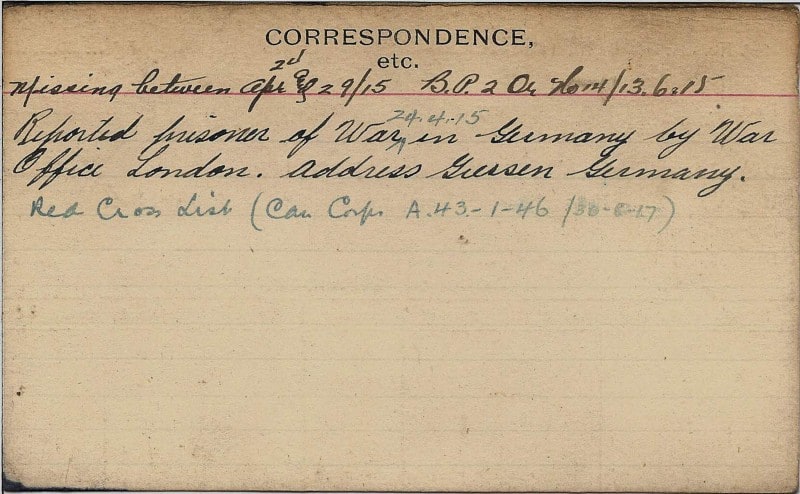 CORRESPONDENCE,
etc.
Missing between Apr 2d & 29/15 B.P. 2 Or No 14/13.6.15
24.4.15
Reported prisoner of War, in Germany by War
Office London. Address Giessen Germany.
Red Cross List (Can Corps A.43-1-46 /30-6-17)